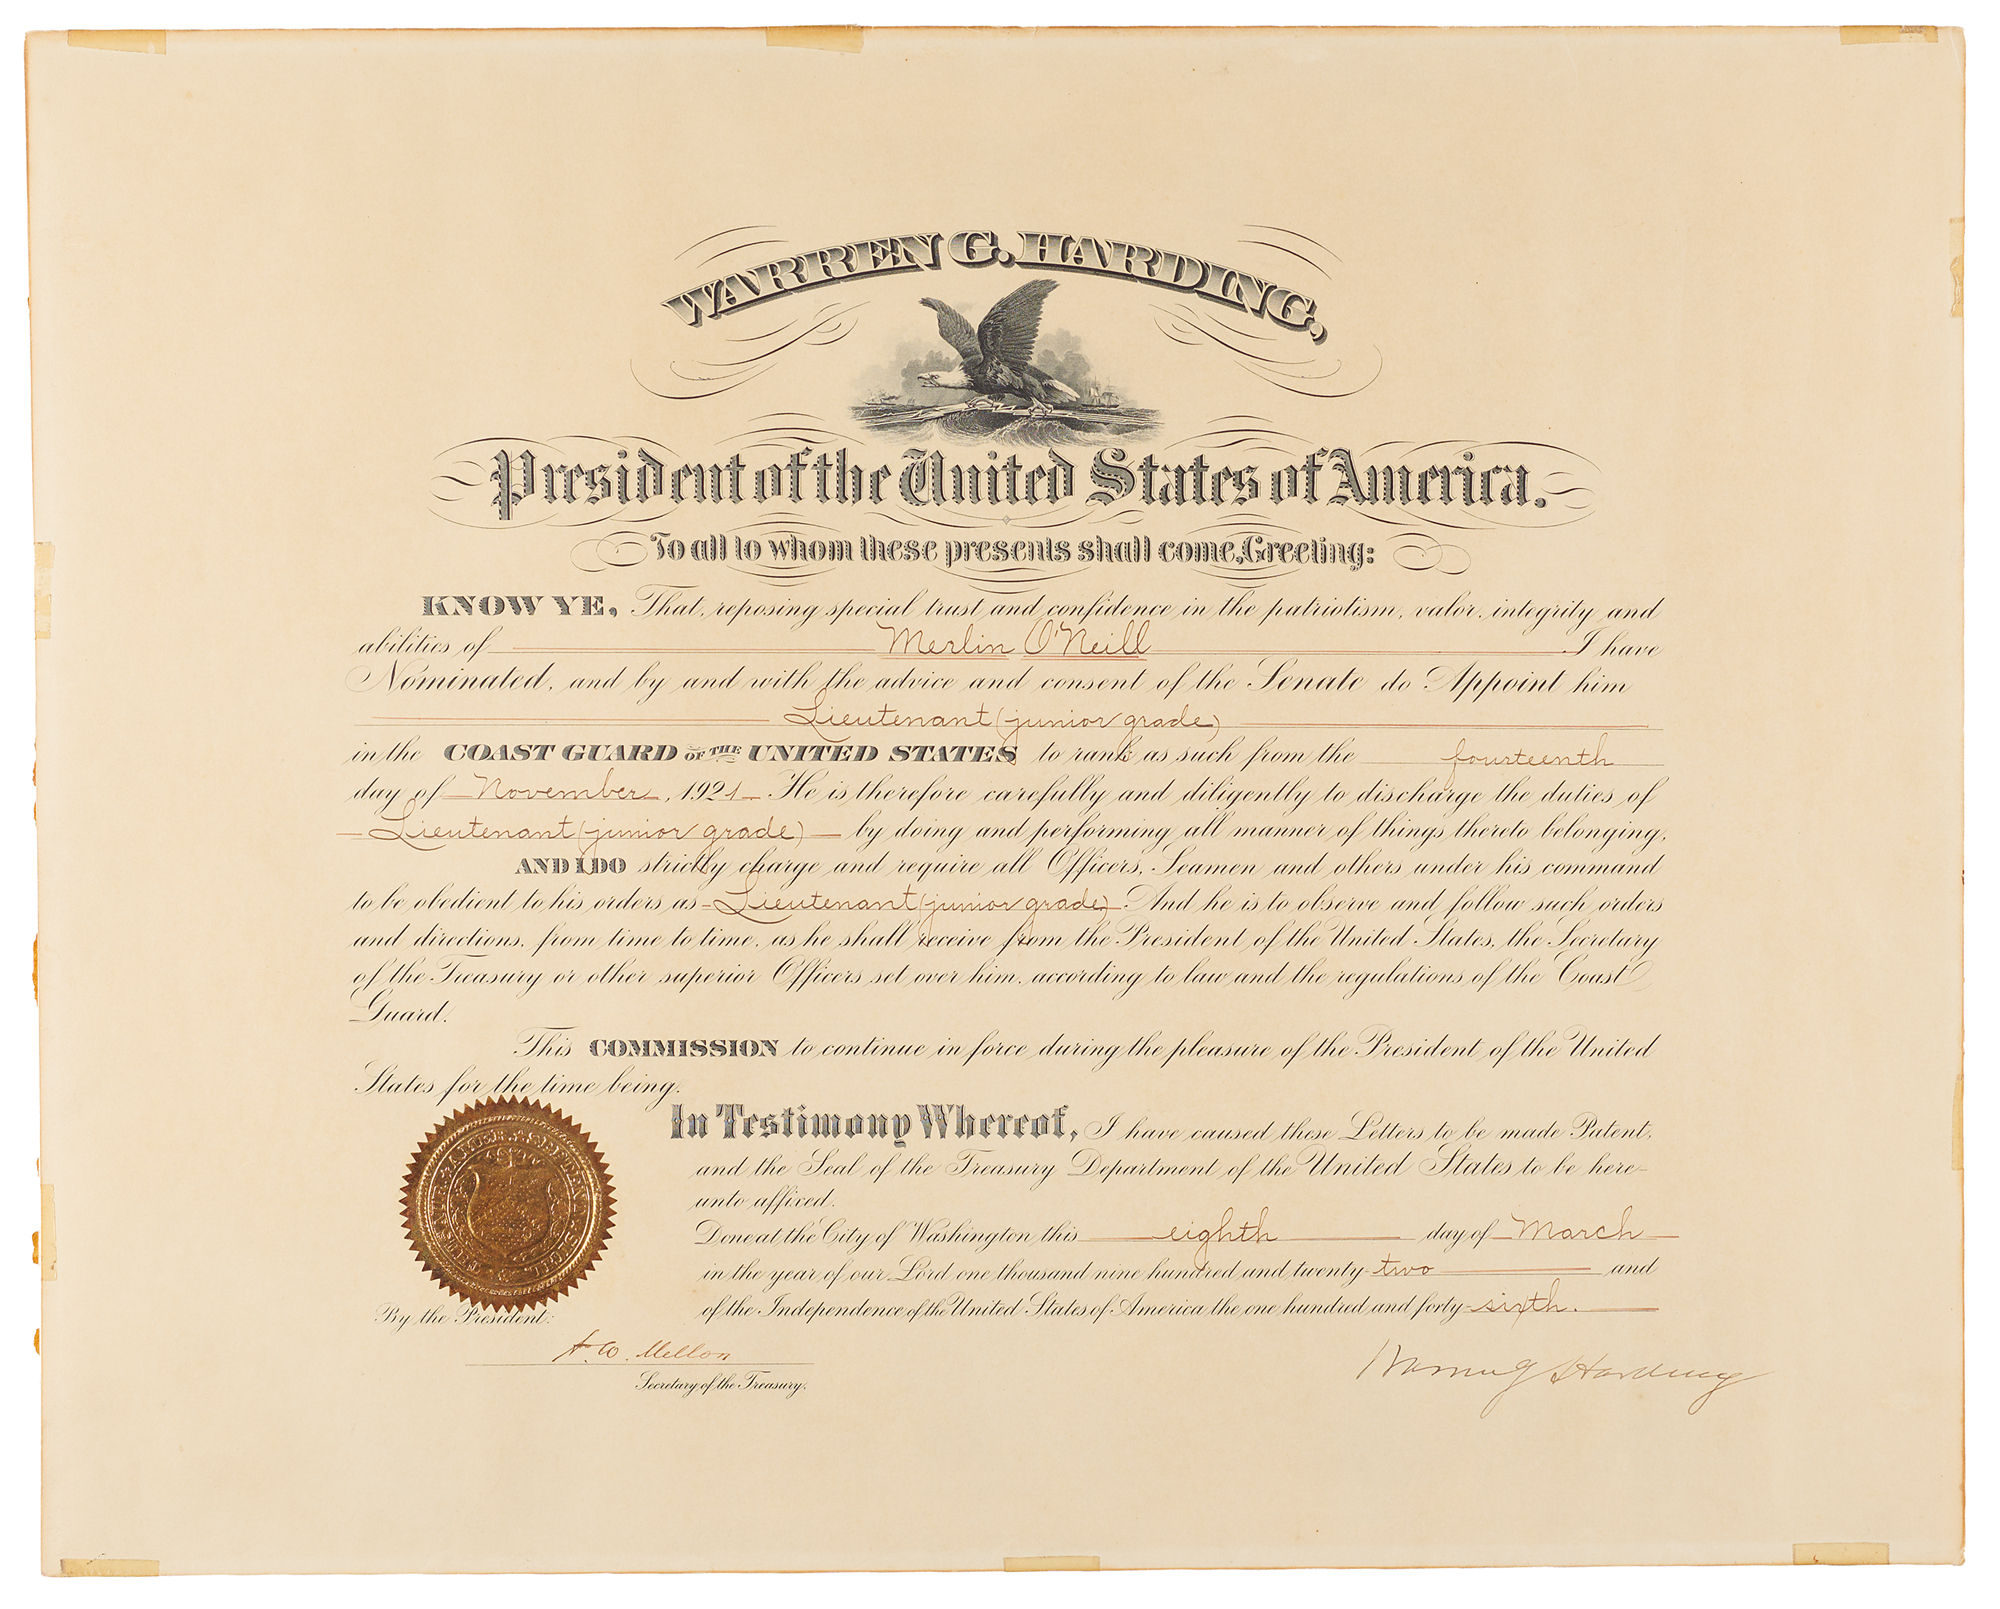 WARREN G. HARDING,
President of the United States of America.
To all to whom these presents shall come, Greeting:
KNOW YE, That, reposing special trust and confidence in the patriotism, valor, integrity and
abilities of Merlin O'Neill I have
Nominated, and by and with the advice and consent of the Senate do Appoint him
Lieutenant (junior grade)
in the COAST GUARD OF THE UNITED STATES to rank as such from the fourteenth
day of November, 1921 He is therefore carefully and diligently to discharge the duties of
Lieutenant (junior grade) by doing and performing all manner of things thereto belonging,
AND I DO strictly charge and require all Officers, Seamen and others under his command
to be obedient to his orders as Lieutenant (junior grade). And he is to observe and follow such orders
and directions, from time to time, as he shall receive from the President of the United States, the Secretary
of the Treasury or other superior Officers set over him, according to law and the regulations of the Coast
Guard.
This COMMISSION to continue in force during the pleasure of the President of the United
States for the time being.
In Testimony Whereof, I have caused these Letters to be made Patent,
and the Seal of the Treasury Department of the United States to be here-
unto affixed.
Done at the City of Washington this eighth day of March
in the year of our Lord one thousand nine hundred and twenty-two and
of the Independence of the United States of America the one hundred and forty-sixth.
By the President:
A. W. Mellon
Secretary of the Treasury.
Warren G Harding